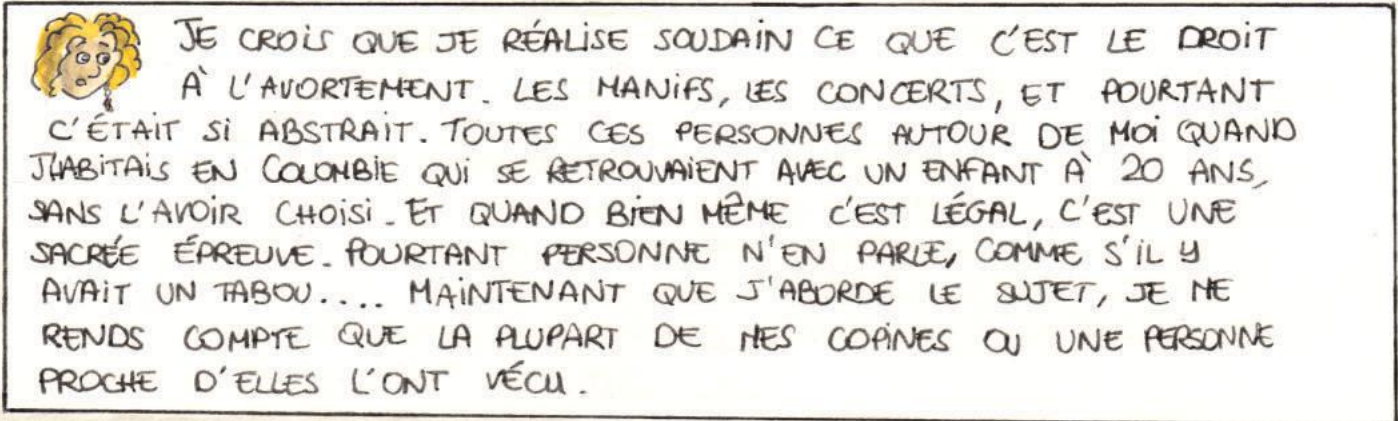 JE CROIS QUE JE RÉALISE SOUDAIN CE QUE C'EST LE DROIT
À L'AVORTEMENT. LES MANIFS, LES CONCERTS, ET POURTANT
C'ÉTAIT SI ABSTRAIT. TOUTES CES PERSONNES AUTOUR DE MOI QUAND
J'HABITAIS EN COLOMBIE QUI SE RETROUVAIENT AVEC UN ENFANT À 20 ANS,
SANS L'AVOIR CHOISI. ET QUAND BIEN MÊME C'EST LÉGAL, C'EST UNE
SACRÉE ÉPREUVE. POURTANT PERSONNE N'EN PARLE, COMME S'IL Y
AVAIT UN TABOU.... MAINTENANT QUE J'ABORDE LE SUJET, JE ME
RENDS COMPTE QUE LA PLUPART DE MES COPINES OU UNE PERSONNE
PROCHE D'ELLES L'ONT VÉCU.